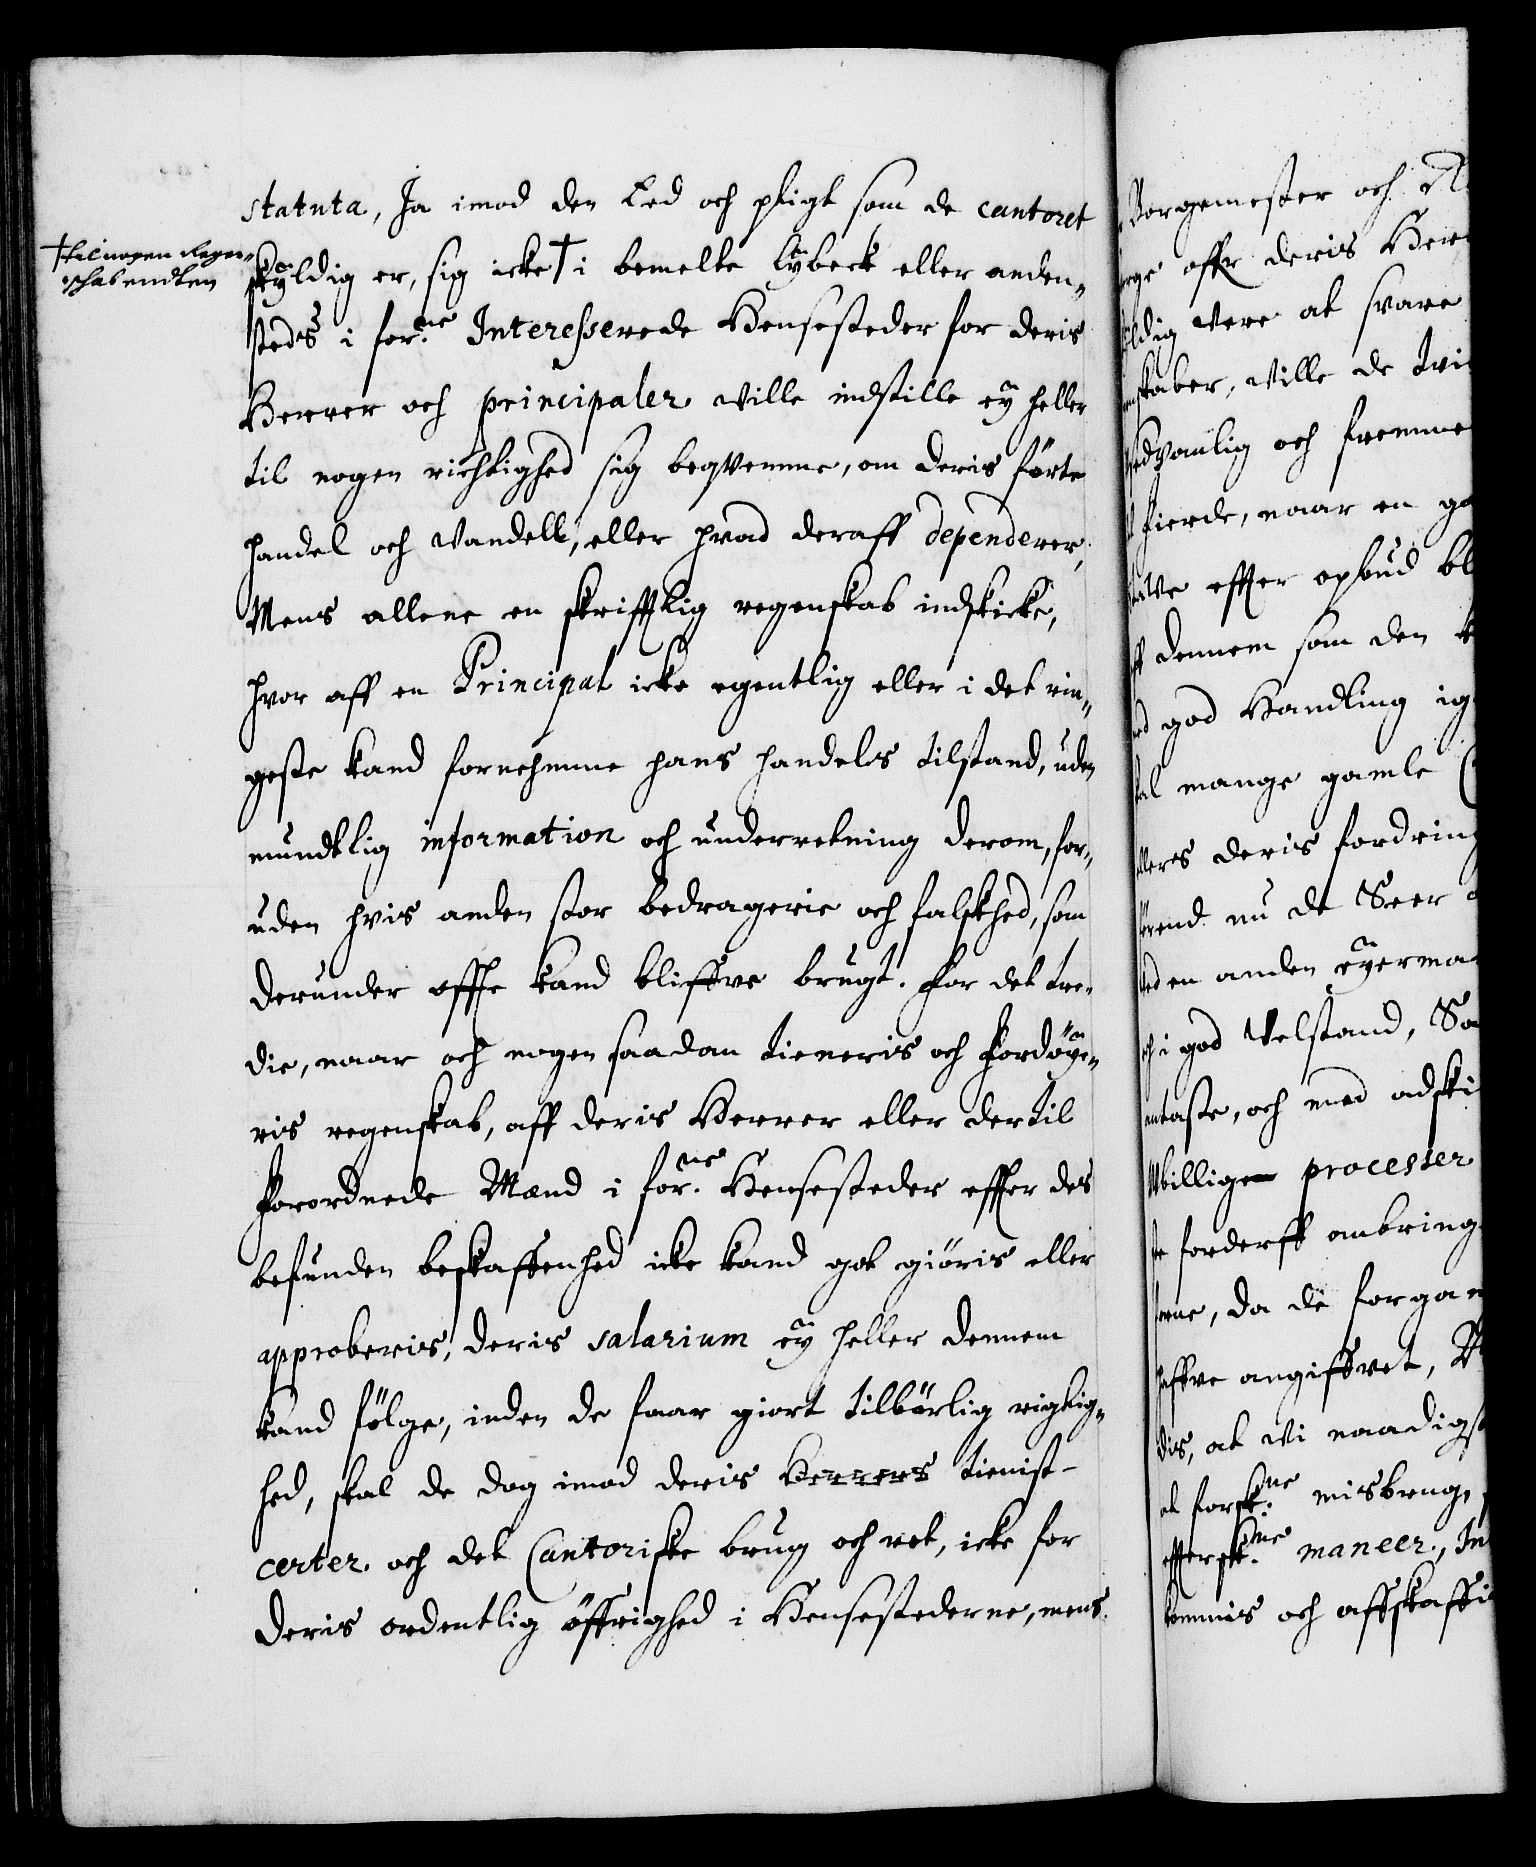 statuta, Ja imod den Eed och pligt som de cantoret
† til nogen Regen=
schab endten
skÿldig er, sig icke † i bemelte Lÿbeck eller anden=
steds i for.ne Interesserede Hensesteder for deris
Herrer och principaler ville indstille eÿ heller
til nogen richtighed sig beqvemme, om deris förte
handel och vandell, eller hvad deraff dependerer,
Mens allene en skrifftlig regenskab indskicke,
hvor aff en Principal icke egentlig eller i det rin=
geste kand fornehmme hans handels tilstand, uden
mundtlig information och underretning derom, for=
uden hvis anden stor bedragerie och falskhed, som
derunder offte kand bliffve brugt. For det tre=
die, naar och nogen saadan tieneris och Fordöÿe=
ris regenskab, aff deris Herrer eller dertil
Forordnede Mænd i for.ne Hensesteder effter des
befunden beskaffenhed icke kand got giöris eller
approberis, deris salarium eÿ heller dennem
kand fölge, inden de faar giort tilbörlig rigtig=
hed, skal de dog imod deris Herrers tienist-
certer och det Cantoriske brug och ret, icke for
deris ordentlig öffrighed i Hensestederne, mens
Borgemester och R
offr deris Her
ldig vere at svare
skaber, ville de tvi
sedvanlig och fremme
fierde, naar en go
effter opbud bl
dennem som den k
god Handling ig
mange gamle
deris fordring
nu de Seer
en anden eÿerma
i god Velstand, Sa
antaste, och med adski
Ubillige processer
forderff anbring
da de forgan
haffve angiffvet,
dis, at Vi naadigst
at forsk.ne misbrug,
efftersk.ne maneer, In
kommis och affskaffi